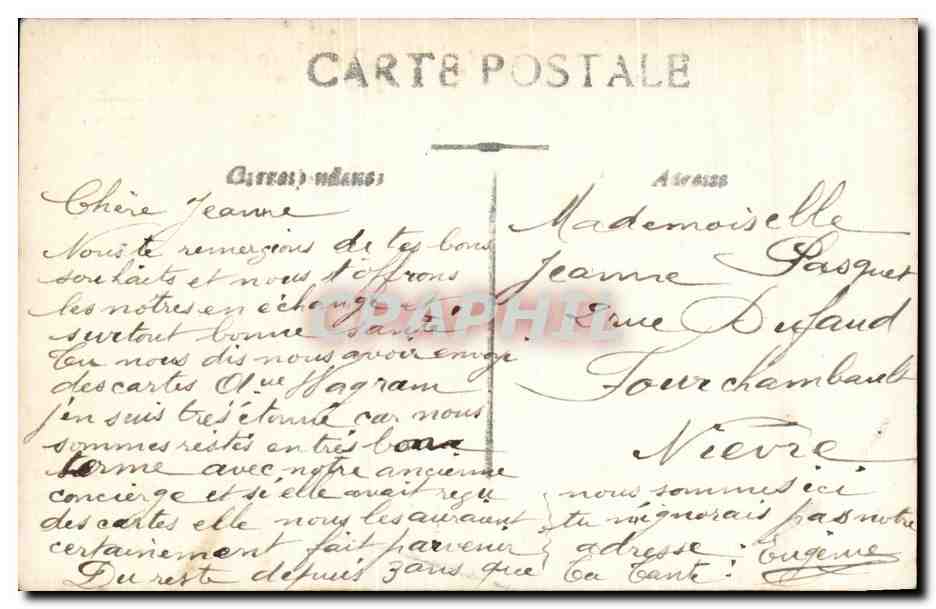 CARTE POSTALE
Correspondance
Adresse
Chère Jeanne
Nous te remercions de tes bons
souhaits et nous t'offrons
les nôtres en échange et
surtout bonne santé
Tu nous dis nous avoir envoyé
des cartes Wagram
j'en suis très étonné car nous
sommes restés en très bon
terme avec notre ancienne
concierge et si elle avait reçu
des cartes elle nous les auraient
certainement fait parvenir
Du reste depuis 3 ans que
nous sommes ici
tu n'ignorais pas notre
adresse :
Ta Tante : Eugénie
Mademoiselle
Jeanne Pasquet
2 rue Dufaud
Fourchambault
Nièvre
CPAPHIL